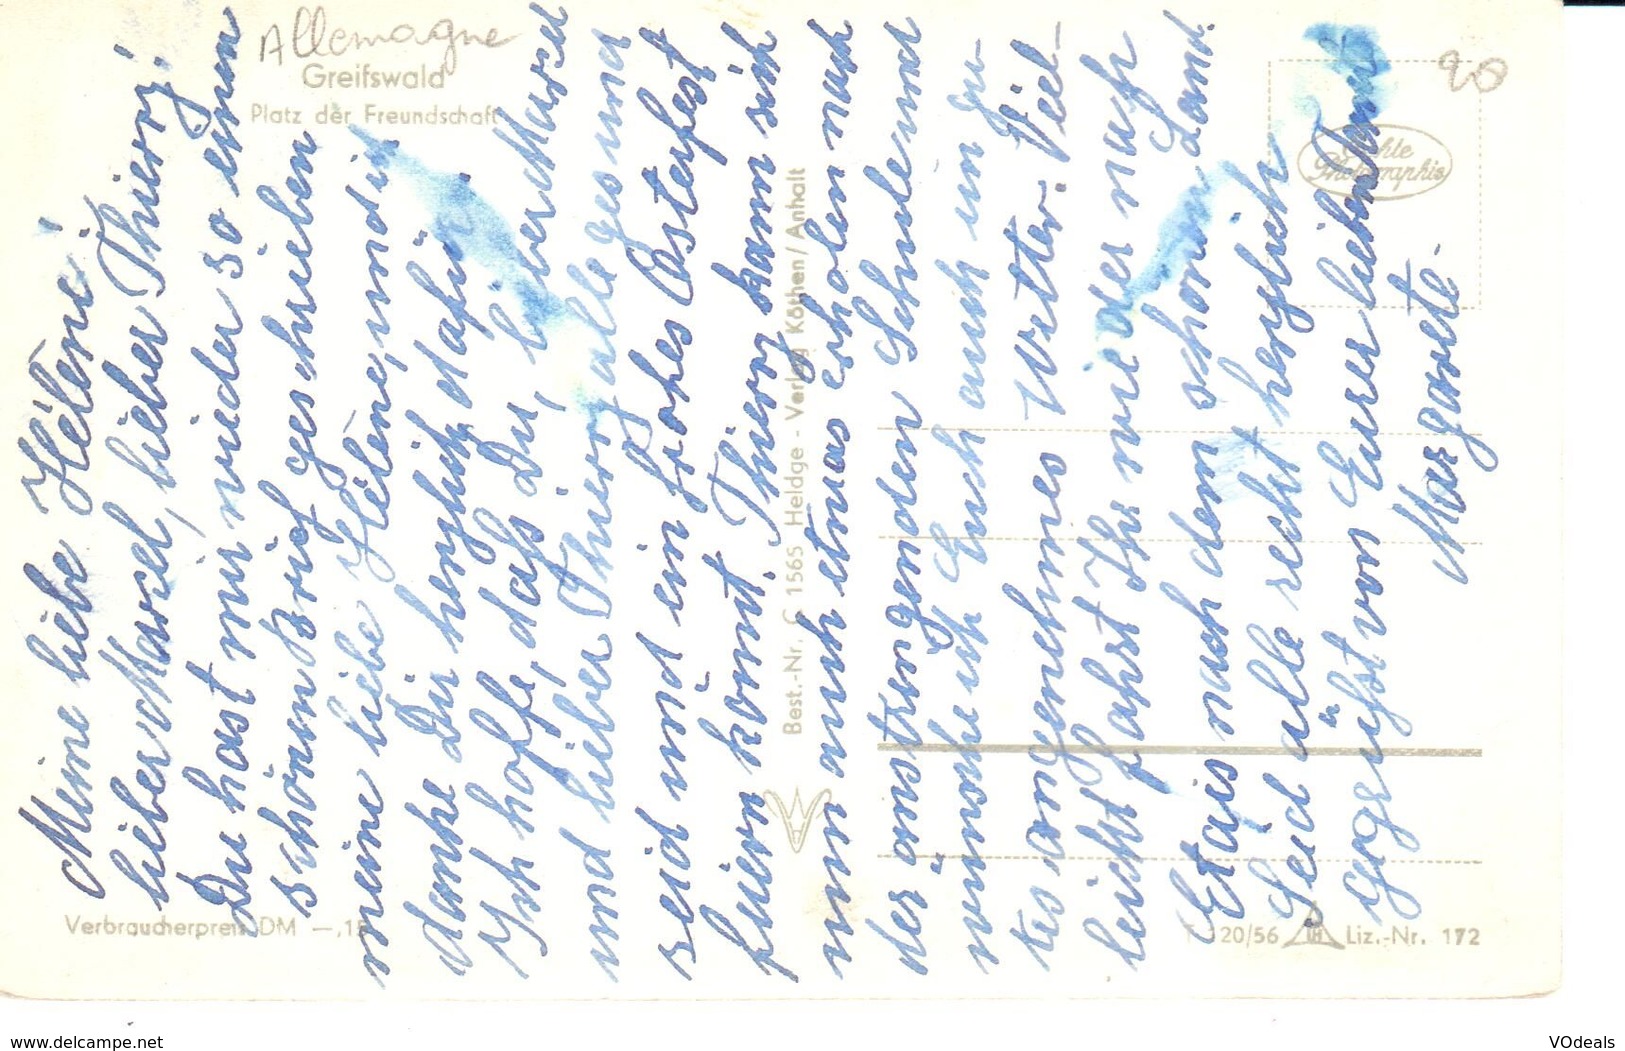 Allemagne
Greifswald
Platz der Freundschaft
20
Echte
Photographie
Meine liebe Hélène!
lieber Marcel, lieber Thierry!
Du hast mir wieder so einen
schönen Brief geschrieben
meine liebe Hélène, und ich
danke Dir herzlich dafür.
Ich hoffe, daß Du, lieber Marcel
und lieber Thierry alle gesund
seid und ein frohes Osterfest
feiern könnt. Thierry kann sich
nun auch etwas erholen nach
der anstrengenden Schule und
wünsche ich Euch auch ein gu-
tes angenehmes Wetter. Viel-
leicht fahrt Ihr wieder nach
Etais nach dem schönen Land.
Seid alle recht herzlich
gegrüßt von Eurer lieben Tante
Margarete.
Best.-Nr. C 1565 Heldge-Verlag Köthen/Anhalt
Verbraucherpreis DM —,15
T 120/56 Liz.-Nr. 172
www.delcampe.net
VOdeals